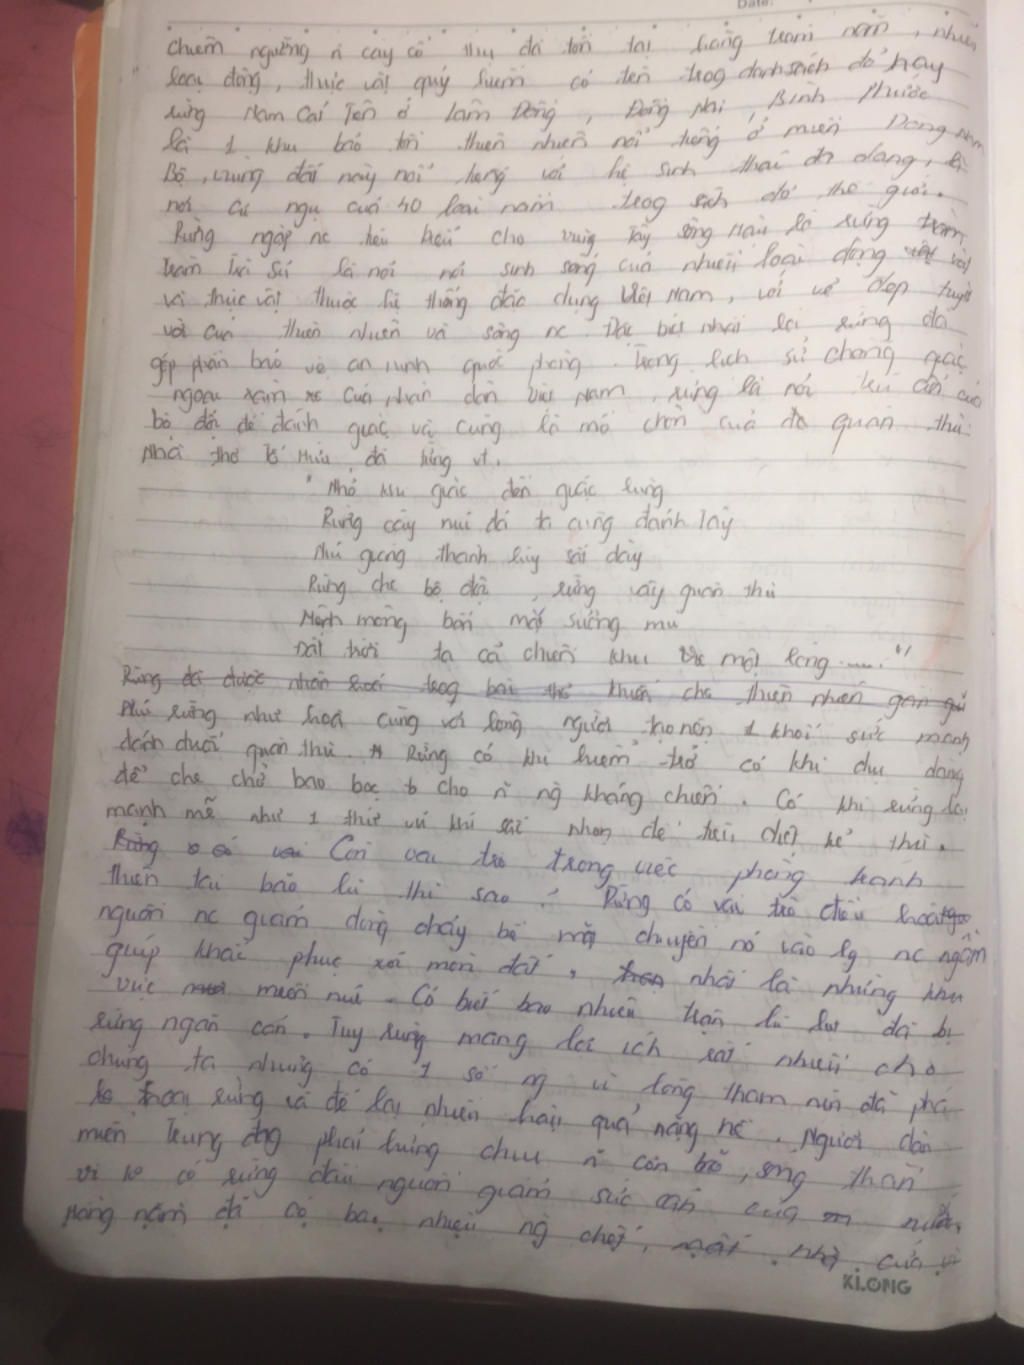 Date:
chiêm ngưỡng n cây cổ thụ đã tồn tại hàng trăm năm, nhiều
loại động, thực vật quý hiếm có tên trog danh sách đỏ hay
rừng Nam Cát Tiên ở Lâm Đồng, Đồng Nai, Bình Phước
là 1 khu bảo tồn thiên nhiên nổi tiếng ở miền Đông Nam
Bộ, vùng đất này nổi tiếng với hệ sinh thái đa dạng, là
nơi cư ngụ của 40 loài nằm trog sách đỏ thế giới.
Rừng ngập nc tiêu biểu cho vùng Tây sông Hậu là rừng tràm
tràm Trà Sư là nơi nơi sinh sống của nhiều loại động vật
và thực vật thuộc hệ thống đặc dụng Việt Nam, với vẻ đẹp tuyệt
vời của thiên nhiên và sông nc. Đặc biệt nhất là rừng đã
góp phần bảo vệ an ninh quốc phòng. Trong lịch sử chống giặc
ngoại xâm của nhân dân Việt Nam, rừng là nơi trú ẩn của
bộ đội để đánh giặc và cũng là mồ chôn của quân thù.
Nhà thơ Tố Hữu đã từng vt.
" Nhớ khi giặc đến giặc lùng
Rừng cây núi đá ta cùng đánh Tây
Núi giăng thành lũy sắt dày
Rừng che bộ đội, rừng vây quân thù
Mênh mông bốn mặt sương mù
Đất trời ta cả chiến khu một lòng ....."
Rừng đã được nhân hoá trog bài thơ khiến cho thiên nhiên gần gũi
Núi rừng như hoà cùng với lòng người tạo nên 1 khối sức mạnh
đánh đuổi quân thù. Rừng có khi hiểm trở có khi dịu dàng
để che chở bao bọc cho n ng kháng chiến. Có khi rừng lại
mạnh mẽ như 1 thứ vũ khí sắc nhọn để tiêu diệt kẻ thù.
Rừng có vai Còn vai trò trong việc phòng tránh
thiên tai bão lũ thì sao? Rừng có vai trò điều hoà
nguồn nc giảm dòng chảy bề mặt chuyển nó vào lg nc ngầm
giúp khắc phục xói mòn đất, nhất là những khu
vực miền núi. Có biết bao nhiêu trận lũ lụt đã bị
rừng ngăn cản. Tuy rừng mang lợi ích rất nhiều cho
chúng ta nhưng có 1 số ng vì lòng tham nên đã phá
hoại rừng và để lại nhiều hậu quả nặng nề. Người dân
miền Trung đag phải hứng chịu n cơn bão, sóng thần
vì ko có rừng đầu nguồn giảm sức cản của nước,
Hàng năm đã có bao nhiêu ng chết, mất nhà cửa vì
KLONG